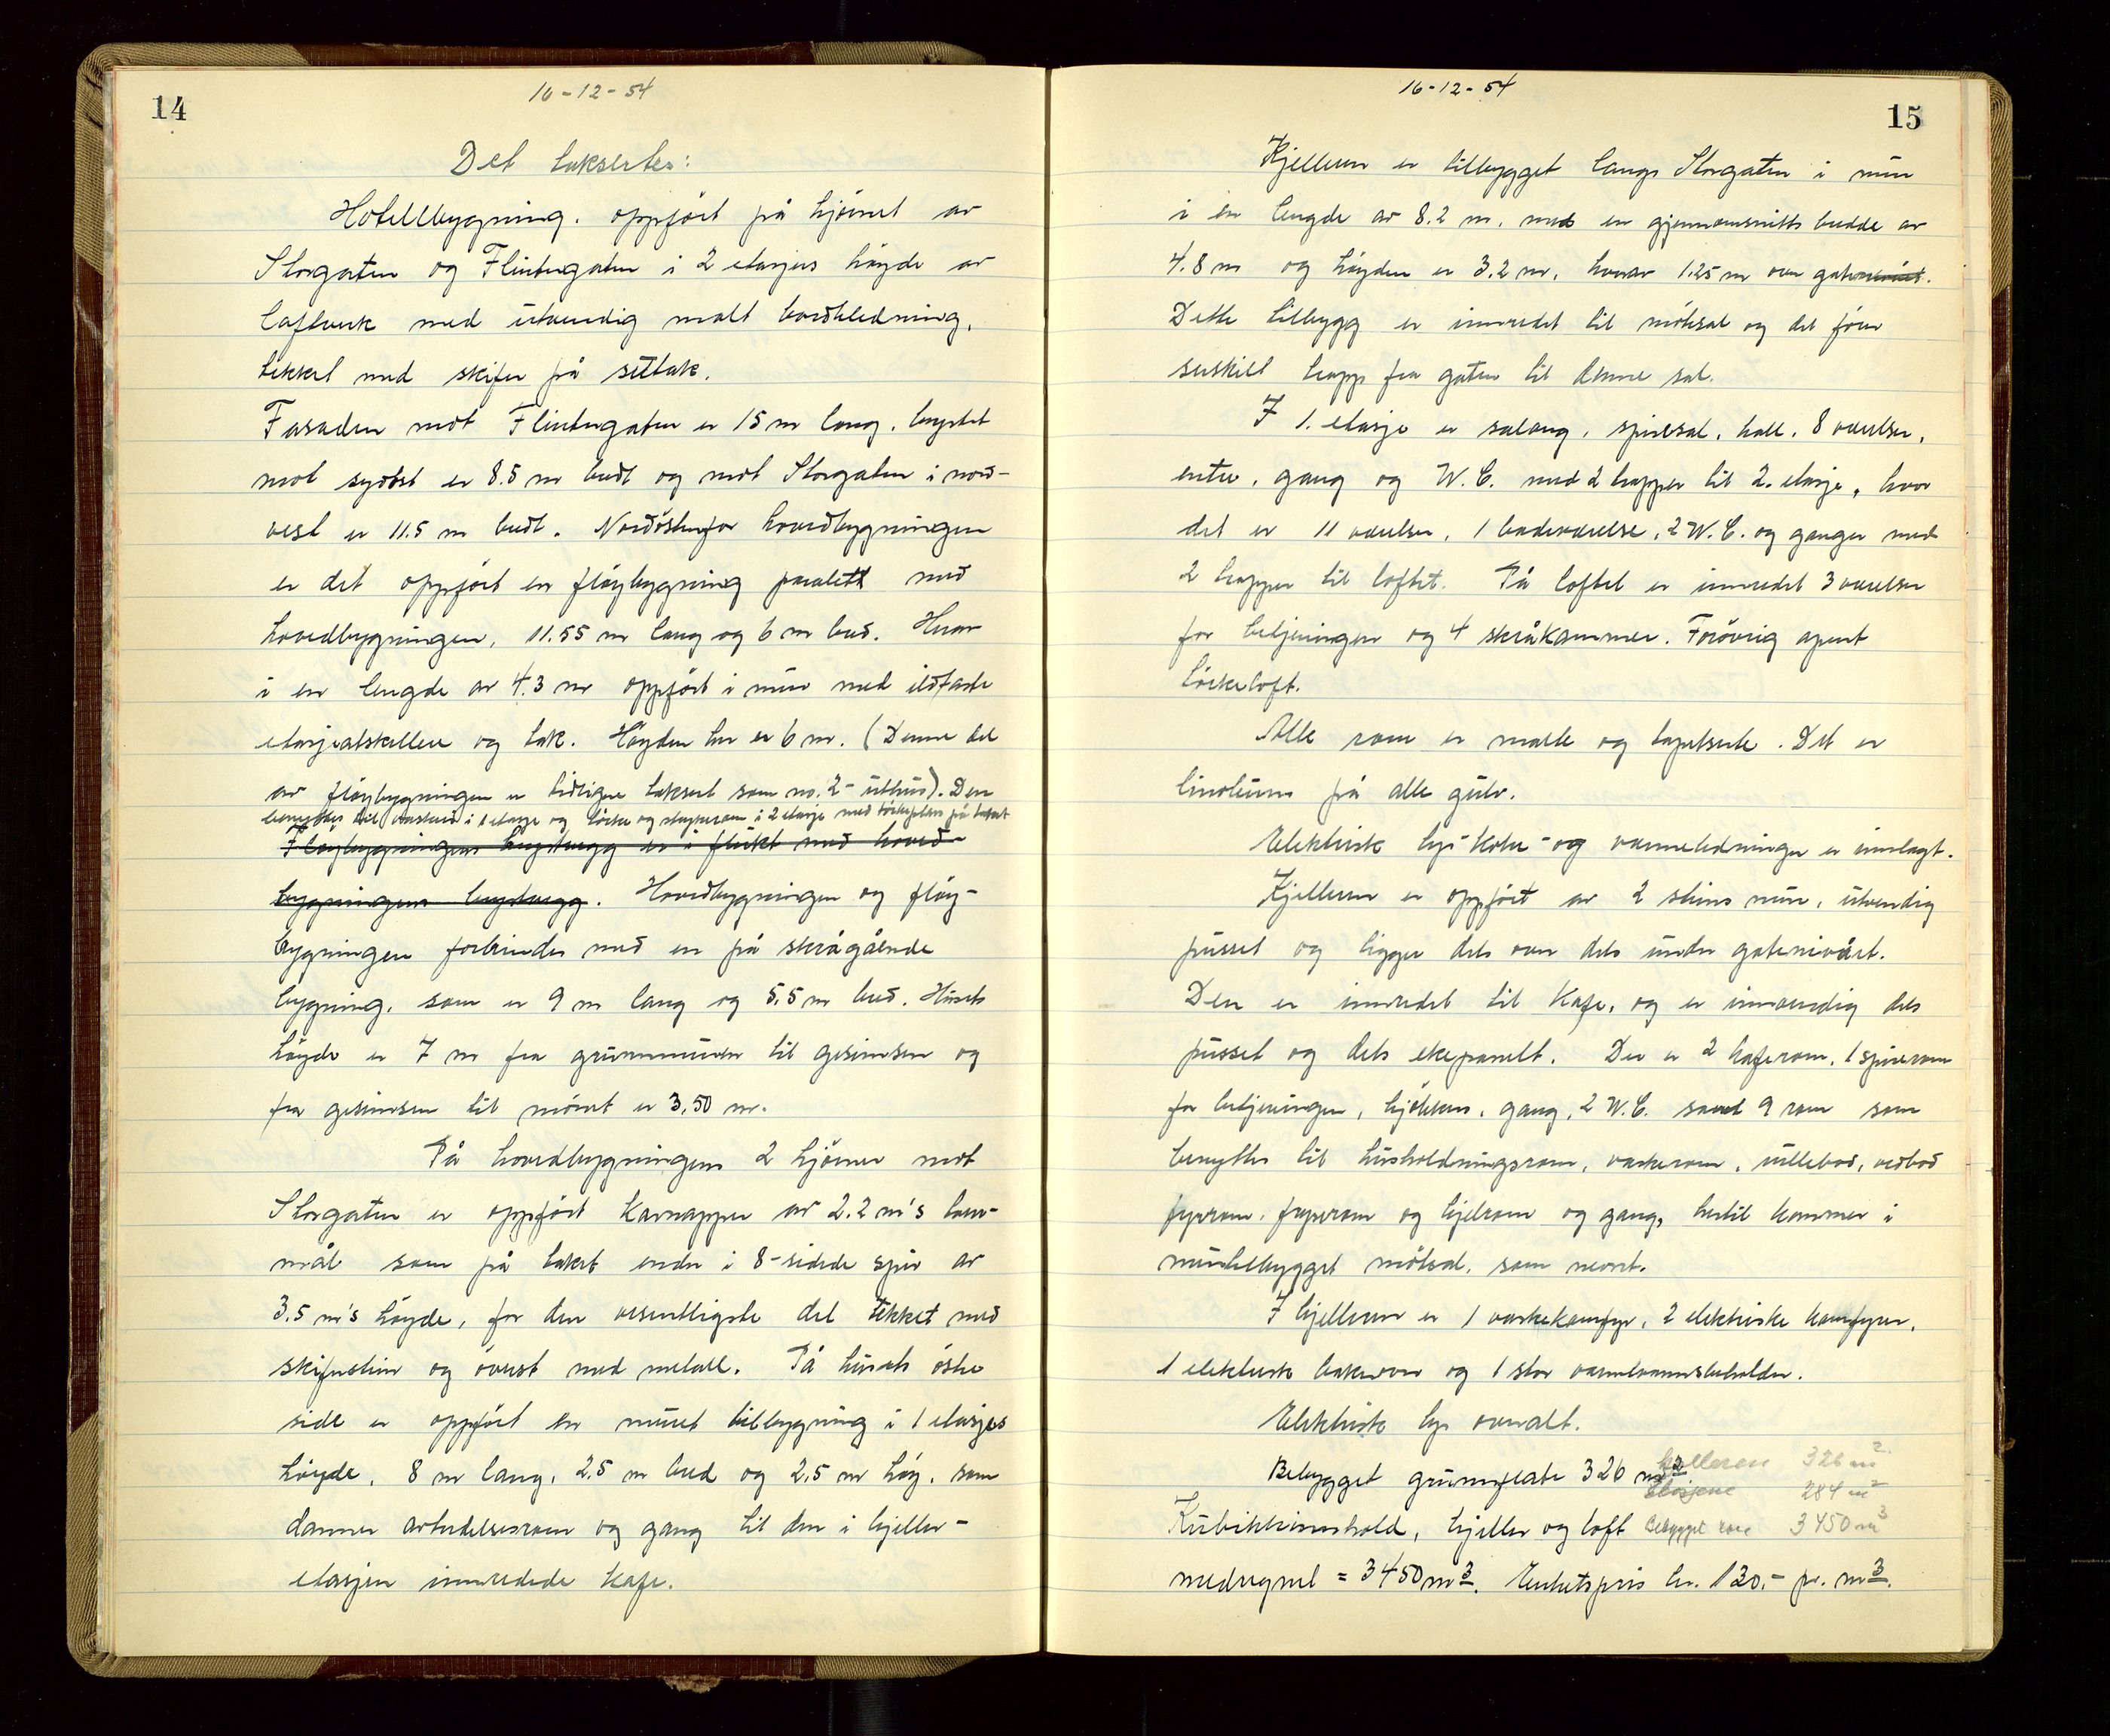 14
16-12-54
Det takseertes:
Hotellbygning. oppført på hjørnet av
Storgaten og Flintegaten i 2 etasjers høyde av
laftverk med utvendig malt bordkledning,
tekket med skifer på settak.
Fasaden mot Flintegaten er 15 m lang, bygget
mot sydøst er 8.5 m bredt og mot Storgaten i nord-
vest er 11.5 m bredt. Nordøstenfor hovedbygningen
er det oppført en fløybygning paralett med
hovedbygningen, 11.55 m lang og 6 m bred. Hvorav
i en lengde av 4.3 m oppført i mur med ildfaste
etasjeatskillere og tak. Høyden her er 6 m. (Denne del
av fløybygningen er tidligere taksert som no. 2 - uthus). Den
benyttes til vaskeri i 1 etasje og tørke og strykerom i 2 etasje med tørkeplass på taket
Fløybygningens langvegg er i flukt med hoved-
bygningens langvegg. Hovedbygningen og fløy-
bygningen forbindes med en på skrågående
bygning, som er 9 m lang og 5,5 m bred. Husets
høyde er 7 m fra grunnmuren til gesimsen og
fra gesimsen til mønet er 3,50 m.
På hovedbygningens 2 hjørner mot
Storgaten er oppført karnapper av 2.2 m's tverr-
mål som på taket ender i 8-sidede spir av
3.5 m's høyde, for den vesentligste del tekket med
skiferstein og øverst med metall. På husets østre
side er oppført en muret tilbygning i 1 etasjes
høyde, 8 m lang, 2,5 m bred og 2,5 m høy, som
danner avtredelsesrom og gang til den i kjeller-
etasjen innredede kafe.
16-12-54
15
Kjelleren er tilbygget langs Storgaten i mur
i en lengde av 8.2 m. med en gjennomsnitts bredde av
4.8 m og høyden er 3.2 m, hvorav 1.25 m over gatenivået.
Dette tilbygg er innredet til møtesal og det fører
serskilt trapp fra gaten til denne sal.
I 1. etasje er salong, spisesal, hall, 8 værelser,
entre, gang og W.C. med 2 trapper til 2. etasje, hvor
det er 11 værelser, 1 badeværelse, 2 W.C. og ganger med
2 trapper til loftet. På loftet er innredet 3 værelser
for betjeningen og 4 skråkammer. Forøvrig apent
tørkeloft.
Alle rom er malte og tapetserte. Det er
linoleum på alle gulv.
Elektrisk lys- koke- og varmeledninger er innlagt.
Kjelleren er oppført av 2 stens mur, utvendig
pusset og ligger dels over dels under gatenivået.
Den er innredet til Kafe, og er innvendig dels
pusset og dels ekepanelt. Der er 2 kaferom, 1 spiserom
for betjeningen, kjøkken, gang, 2 W.C. samt 9 rom som
benyttes til husholdningsrom, vaskerom, rullebod, vedbod
fyrrom, fryserom og kjølrom og gang, hertil kommer i
murtilbygget møtesal, som nevnt.
I kjelleren er 1 vaskekomfyr, 2 elektriske komfyrer,
1 elektrisk bakerovn og 1 stor varmtvannsbeholder.
Elektrisk lys overalt.
Bebygget grunnflate 326 m2. Kjelleren 326 m2
Etasjene 284 m2
Kubikkinnhold, kjeller og loft Bebygget rom 3450 m3
medregnet = 3450 m3. Enhetspris kr. 130.- pr. m3.